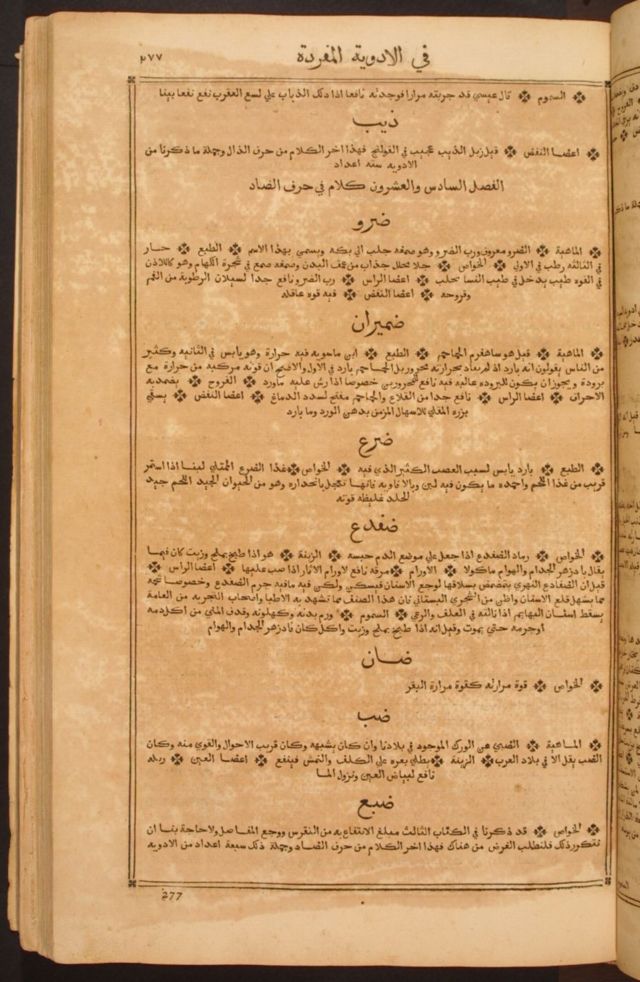 في الادوية المفردة ٢٧٧
السموم قال عيسي قد جربته مرارا فوجدته نافعا اذا دلك الذباب علي لسع العقرب نفع نفعا بينا
ذيب
اعضا النفض قيل زبل الذيب عجيب في القولنج فهذا اخر الكلام من حرف الذال وجملة ما ذكرنا من
الادويه سته اعداد
الفصل السادس والعشرون كلام في حرف الضاد
ضرو
الماهية الضرو معروف ورب الضرو وهو صمغه جلب الي بكه ويسمي بهذا الاسم الطبع حار
في الثالثه رطب في الاولي الخواص جلا محلل جذاب من عمق البدن وصمغه صمغ في شجرة اكلهام وهو كاللاذن
في القوه طيب يدخل في طيب النسا يجلب اعضا الراس رب الضرو نافع جدا لسيلان الرطوبة من الفم
وقروحه اعضا النفض فيه قوه عاقله
ضميران
الماهية قيل هو ساهفرم الجماجم الطبع ابن ماسويه فيه حرارة وهو يابس في الثانيه وكثير
من الناس يقولون انه بارد الجماجم بارد في الاول والاصح ان قوته مركبه من حرارة مع
برودة ويجوز ان يكون البروده غالبه فيه نافع للمحرورين خصوصا اذا رش عليه ماورد القروح يضمد به
الاحراق اعضا الراس نافع جدا من القلاع والجماجم مفتح لسدد الدماغ اعضا النفض يسقي
بزره المقلي للاسهال المزمن بدهن الورد وما بارد
ضرع
الطبع بارد يابس لسبب العصب الكثير الذي فيه الخواص غذا الضرع الممتلي لبنا اذا استمر
قريب من غذا اللحم واحمده ما يكون فيه لبن وبالافاويه فانها تعجل بانحداره وهو من الحيوان الجيد اللحم جيد
الخلد غليظه قوته
ضفدع
الخواص رماد الضفدع اذا جعل علي موضع الدم حبسه الزينة هو اذا طبخ بملح وزيت كان فيما
يقال بادزهر الجذام والهوام ماكولا الاورام مرقه نافع لاورام الاوتار اذا صب عليها اعضا الراس
قيل ان الضفادع النهري يتمضمض بسلاقتها لوجع الاسنان فيسكن ولكن فيه ما فيه جرم الضفدع وخصوصا شحمه
مما يسهل قلع الاسنان واظن من الشجري البستاني فان هذا الصنف مما تشهد به الاطبا واصحاب التجربه من العامة
يسقط اسنان البهايم اذا نالته في العلف والرعي السموم ورم بدنه وكمد لونه وقذف المني من اكل دمه
او جرمه حتي يموت وقيل انه اذا طبخ بملح وزيت واكل كان بادزهر الجذام والهوام
ضان
الخواص قوة مرارته كقوة مرارة البقر
ضب
الماهية الضب هو الورل الموجود في بلادنا وان كان يشبهه وكان قريب الاحوال والقوي منه وكان
الضب يقل الا في بلاد العرب الزينة يطلي بعره علي الكلف والنمش فينفع اعضا العين زبله
نافع لبياض العين ونزول الما
ضبع
الخواص قد ذكرنا في الكتاب الثالث مبلغ الانتفاع به من النقرس ووجع المفاصل ولا حاجة بنا ان
نكرر ذلك فلنطلب الغرض من هناك فهذا اخر الكلام من حرف الضاد وجملة ذلك سبعة اعداد من الادويه
277